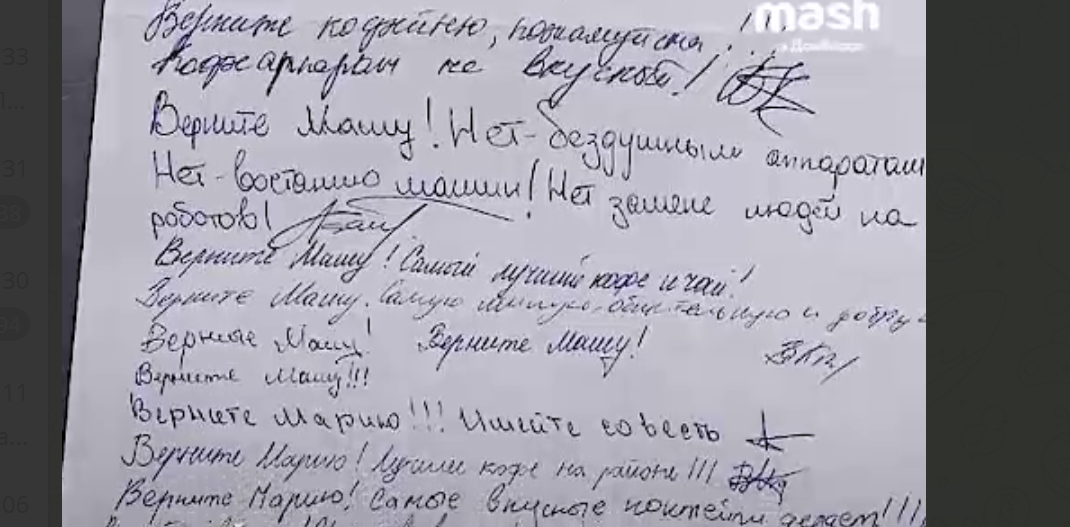 mash
на Донбассе
Верните кофейню, пожалуйста!!!
Кофеаппарат не вкусный!
Верните Машу! Нет-бездушным аппаратам
Нет-востанию машин! Нет замене людей на
роботов!
Верните Машу! Самый лучший кофе и чай!
Верните Машу. Самую милую, общительную и добру
Верные Машу! Верните Машу!
Верните Машу!!!
Верните Марию!!! Имейте совесть
Верните Марию! Лучший кофе на районе!!!
Верните Марию! Самые вкусные коктейли делает!!!
33
31
30
11
06